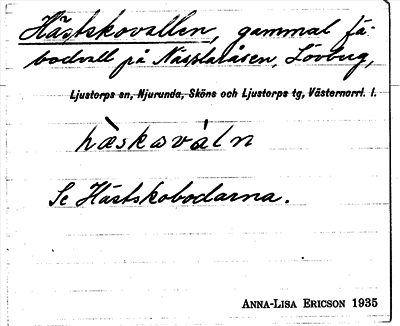 Hästskovallen, gammal fä-
bodvall på Nässlaråsen, Lövberg,
Ljustorps sn, Njurunda, Sköns och Ljustorps tg, Västernorrl. l.
hæskoväln
Se Hästskobodarna.
ANNA-LISA ERICSON 1935